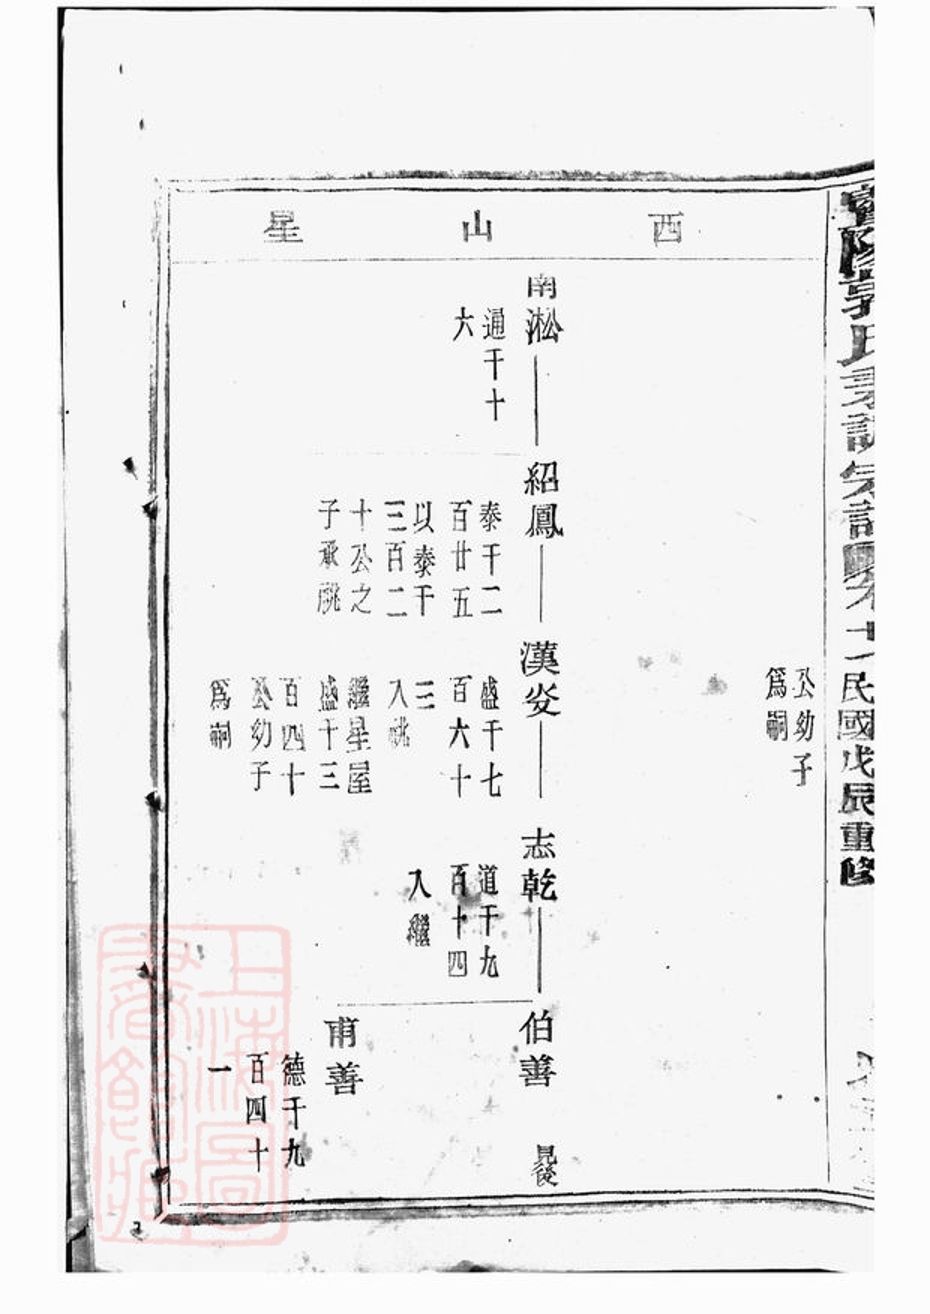 郭氏宗譜卷十一民國戊辰重修
西山星
公幼子
爲嗣
南淞
通千十
六
紹鳳
泰千二
百廿五
以泰千
三百二
十公之
子承祧
漢安
盛千七
百六十
三
入祧
繼星屋
盛千三
百四十
公幼子
爲嗣
志乾
道千九
百十四
入繼
伯善
見後
甫善
德千九
百四十
一
上海圖書館藏